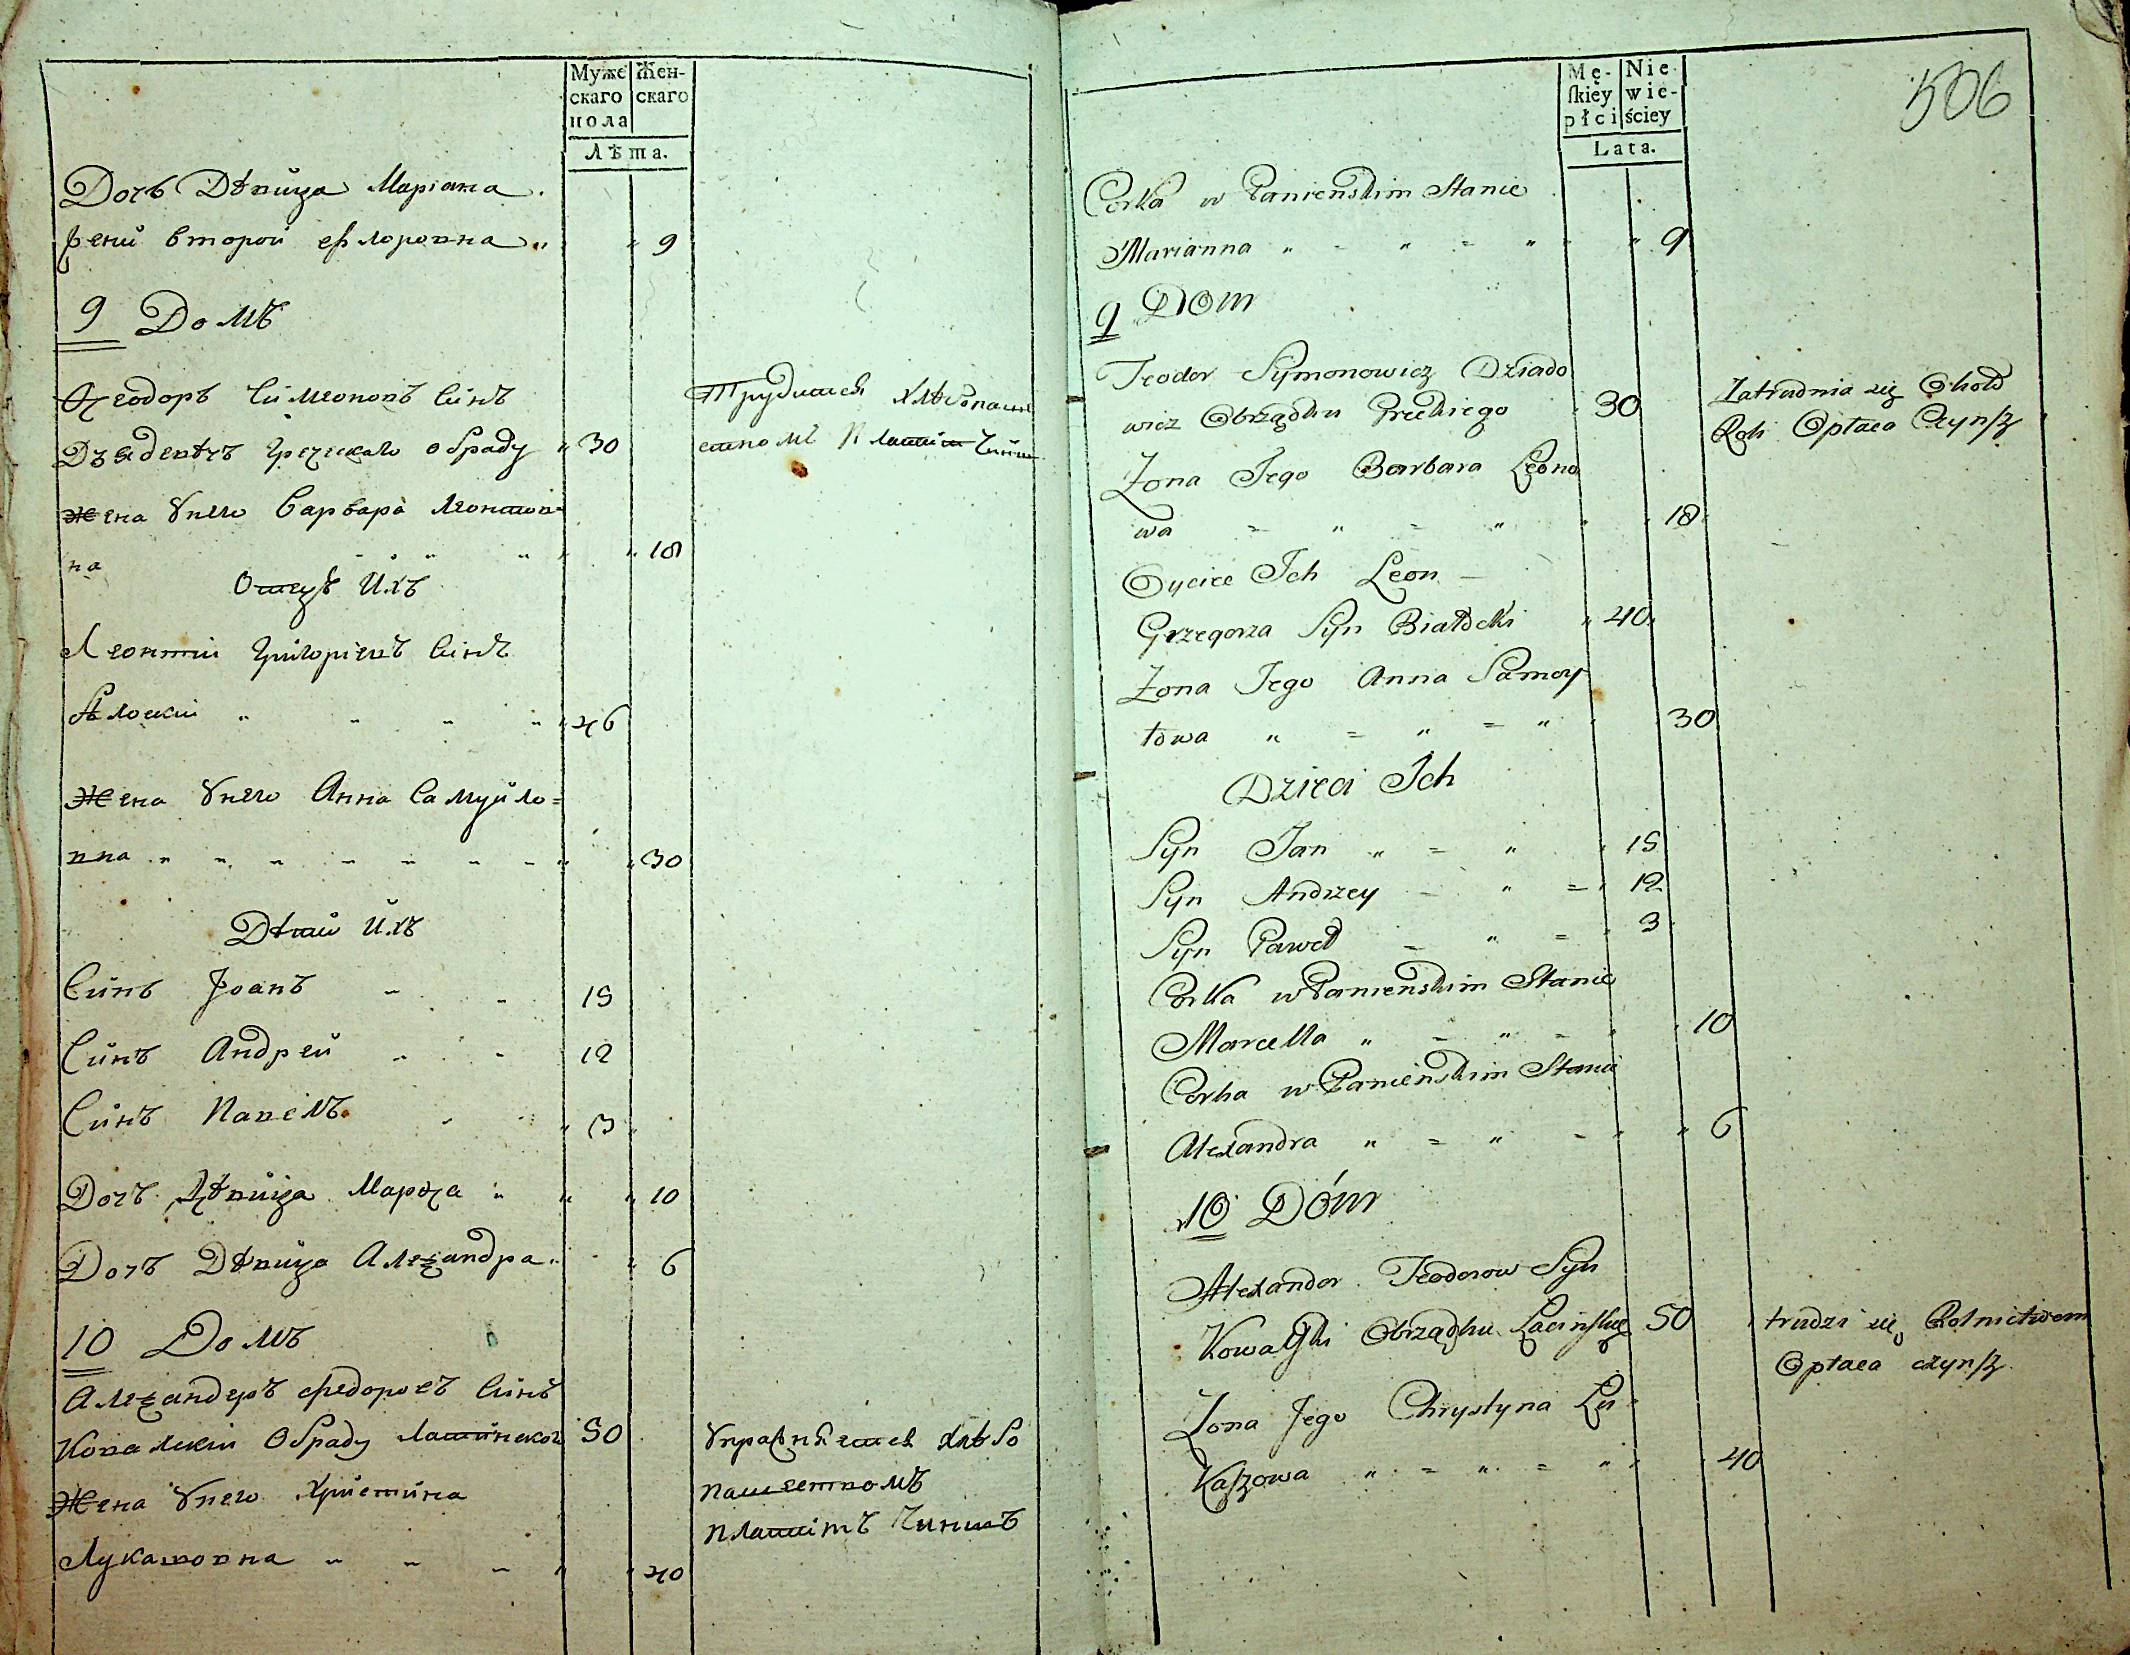 Муже Жен-
скаго скаго
пола
Лѣта.
Дочь Дѣвица Маріана
Второй
" 9
9 Домъ
Ѳеодоръ Симеоновъ Синъ
Трудится хлѣбопаш
Дзядевичъ Греческаго обраду " 30
еством Платит Чинш
Жена Унего Варвара Леонтов=
на " 18
Отецъ Ихъ
Леонтий Григориевъ Синъ
Бялоский " 46
Жена Унего Анна Самуйло=
вна " 30
Дѣти Ихъ
Синъ Іоанъ 15
Синъ Андрей 12
Синъ Павелъ " 3
Дочъ Дѣвица " 10
Дочъ Дѣвица Алеѯандра " 6
10 Домъ
Алеѯандеръ Федоровъ Синъ
Ковалский Обраду Латинского 50
Управляется хлѣбо
Жена Унего Христина
пашеством
платитъ Чиншъ
Лукашовна " 40
506
Mę- Nie
skiey wie-
płci ściey
Lata.
Corka w Panieńskim Stanie
Marianna " = " = " " 9
9 Dom
Teodor Symonowicz Dziado
wicz Obrządku Greckiego 30
Zatrudnia się Około
Roli Opłaca Czynsz
Żona Jego Barbara Leono
wa = " = " 18
Oyciec Ich Leon
Grzegorza Syn Białocki " 40
Żona Jego Anna Samoy
łowa " = " = " 30
Dzieci Ich
Syn Jan " = " 15
Syn Andrzey - " = 12
Syn Paweł = " = 3
Corka w Panieńskim Stanie
Marcella " = " = 10
Corka w Panieńskim Stanie
Alexandra " = " = " 6
10 Dóm
Alexander Teodorow Syn
Kowalski Obrządku Łacińskieg 50
trudzi się Rolnictwem
Opłaca czynsz
Żona Jego Chrystyna Łu=
kaszowa " = " = " 40